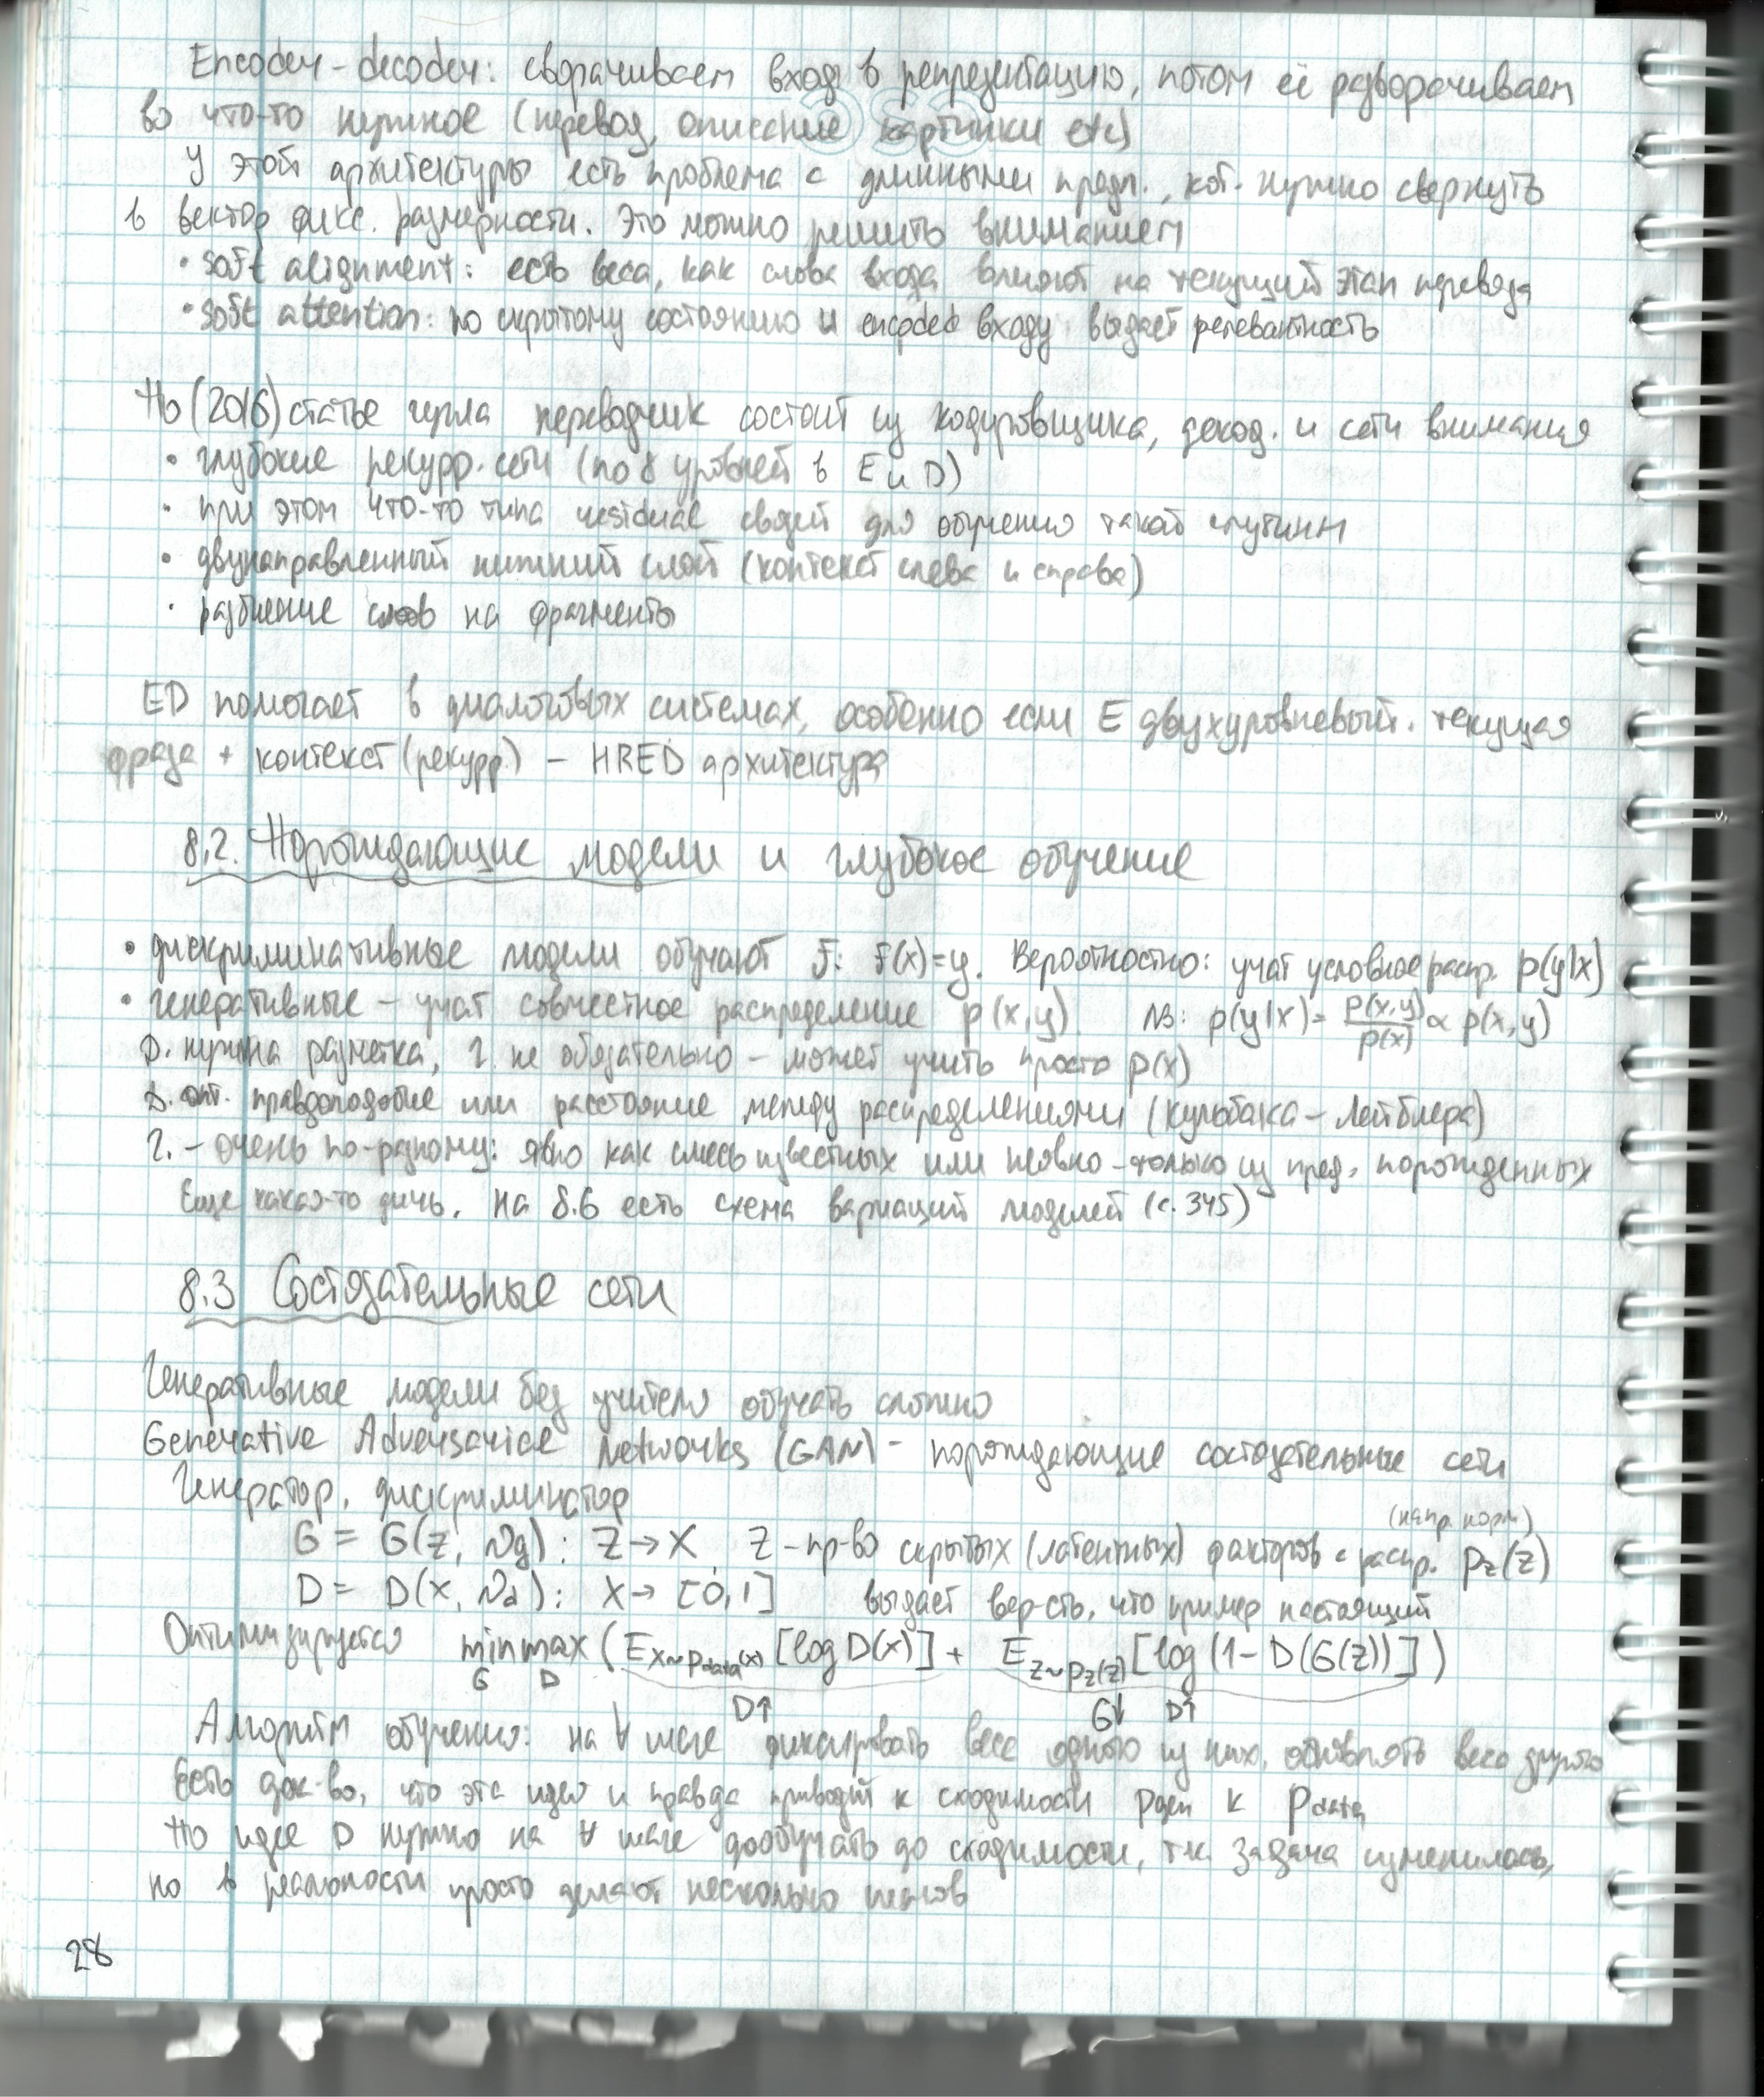 Encoder-decoder: сворачиваем вход в репрезентацию, потом её разворачиваем
во что-то нужное (перевод, описание картинки etc)
У этой архитектуры есть проблема с длинными предл., кот. нужно свернуть
в вектор фикс. размерности. Это можно решить вниманием
• soft alignment: есть веса, как слова входа влияют на текущий этап перевода
• soft attention: по скрытому состоянию и encoded входу выдаёт релевантность
По (2016) статье гугла переводчик состоит из кодировщика, декод. и сети внимания
• глубокие рекурр. сети (по 8 уровней в E и D)
• при этом что-то типа residual связей для обучения такой глубины
• двунаправленный нижний слой (контекст слева и справа)
• разбиение слов на фрагменты
ED помогает в диалоговых системах, особенно если E двухуровневый: текущая
фраза + контекст (рекурр.) – HRED архитектура
8.2. Порождающие модели и глубокое обучение
• дискриминативные модели обучают F: F(x)=y. Вероятностно: учат условное распр. p(y|x)
• генеративные – учат совместное распределение p(x,y) NB: p(y|x) = p(x,y)/p(x) ∝ p(x,y)
Д. нужна разметка, Г. не обязательно – может учить просто p(x)
Д. опт. правдоподобие или расстояние между распределениями (Кульбака – Лейблера)
Г. – очень по-разному: явно как смесь известных или неявно – только из пред. порожденных
Еще какая-то дичь. На 8.6 есть схема вариаций моделей (с. 345)
8.3 Состязательные сети
Генеративные модели без учителя обучать сложно
Generative Adversarial Networks (GAN) – порождающие состязательные сети
Генератор, дискриминатор
(напр. норм)
G = G(z, θg): Z → X, Z – пр-во скрытых (латентных) факторов с распр. pz(z)
D = D(x, θd): X → [0,1] выдает вер-сть, что пример настоящий
Оптимизируется min max (E x~pdata(x) [log D(x)] + E z~pz(z) [log (1 – D(G(z))])
G D
D↑ G↓ D↑
Алгоритм обучения: на ∀ шаге фиксировать веса одного из них, обновлять веса другого
Есть док-во, что эта идея и правда приводит к сходимости pgen к pdata
По идее D нужно на ∀ шаге дообучать до сходимости, т.к. задача изменилась,
но в реальности просто делают несколько шагов
28